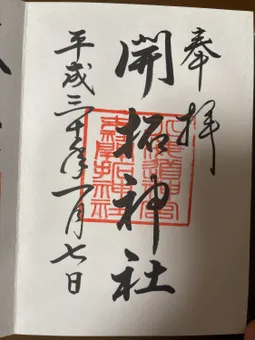 奉拝
開拓神社
平成三十年一月七日
北海道神宮末社開拓神社